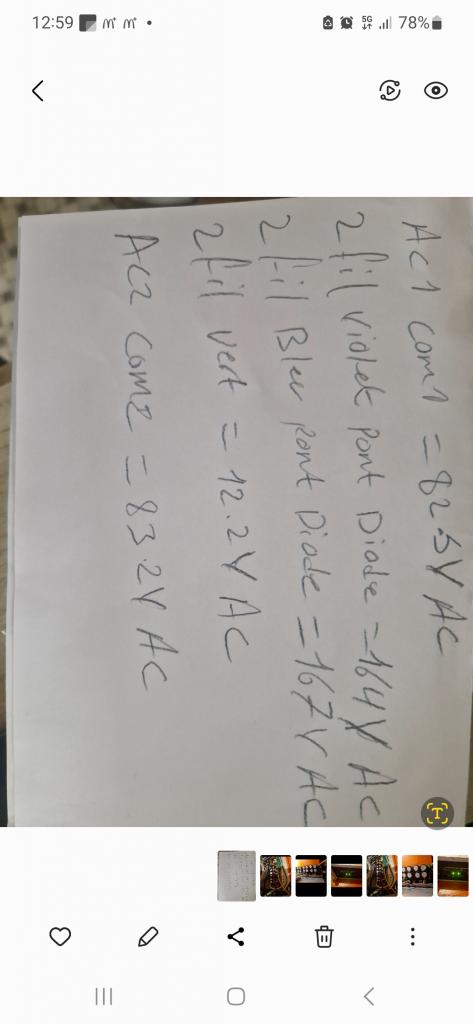 12:59
5G
78%
AC1 Com1 = 82.5V AC
2 fil violet Pont Diode = 164V AC
2 fil Bleu Pont Diode = 167V AC
2 fil vert = 12.2V AC
AC2 Com2 = 83.2V AC
T